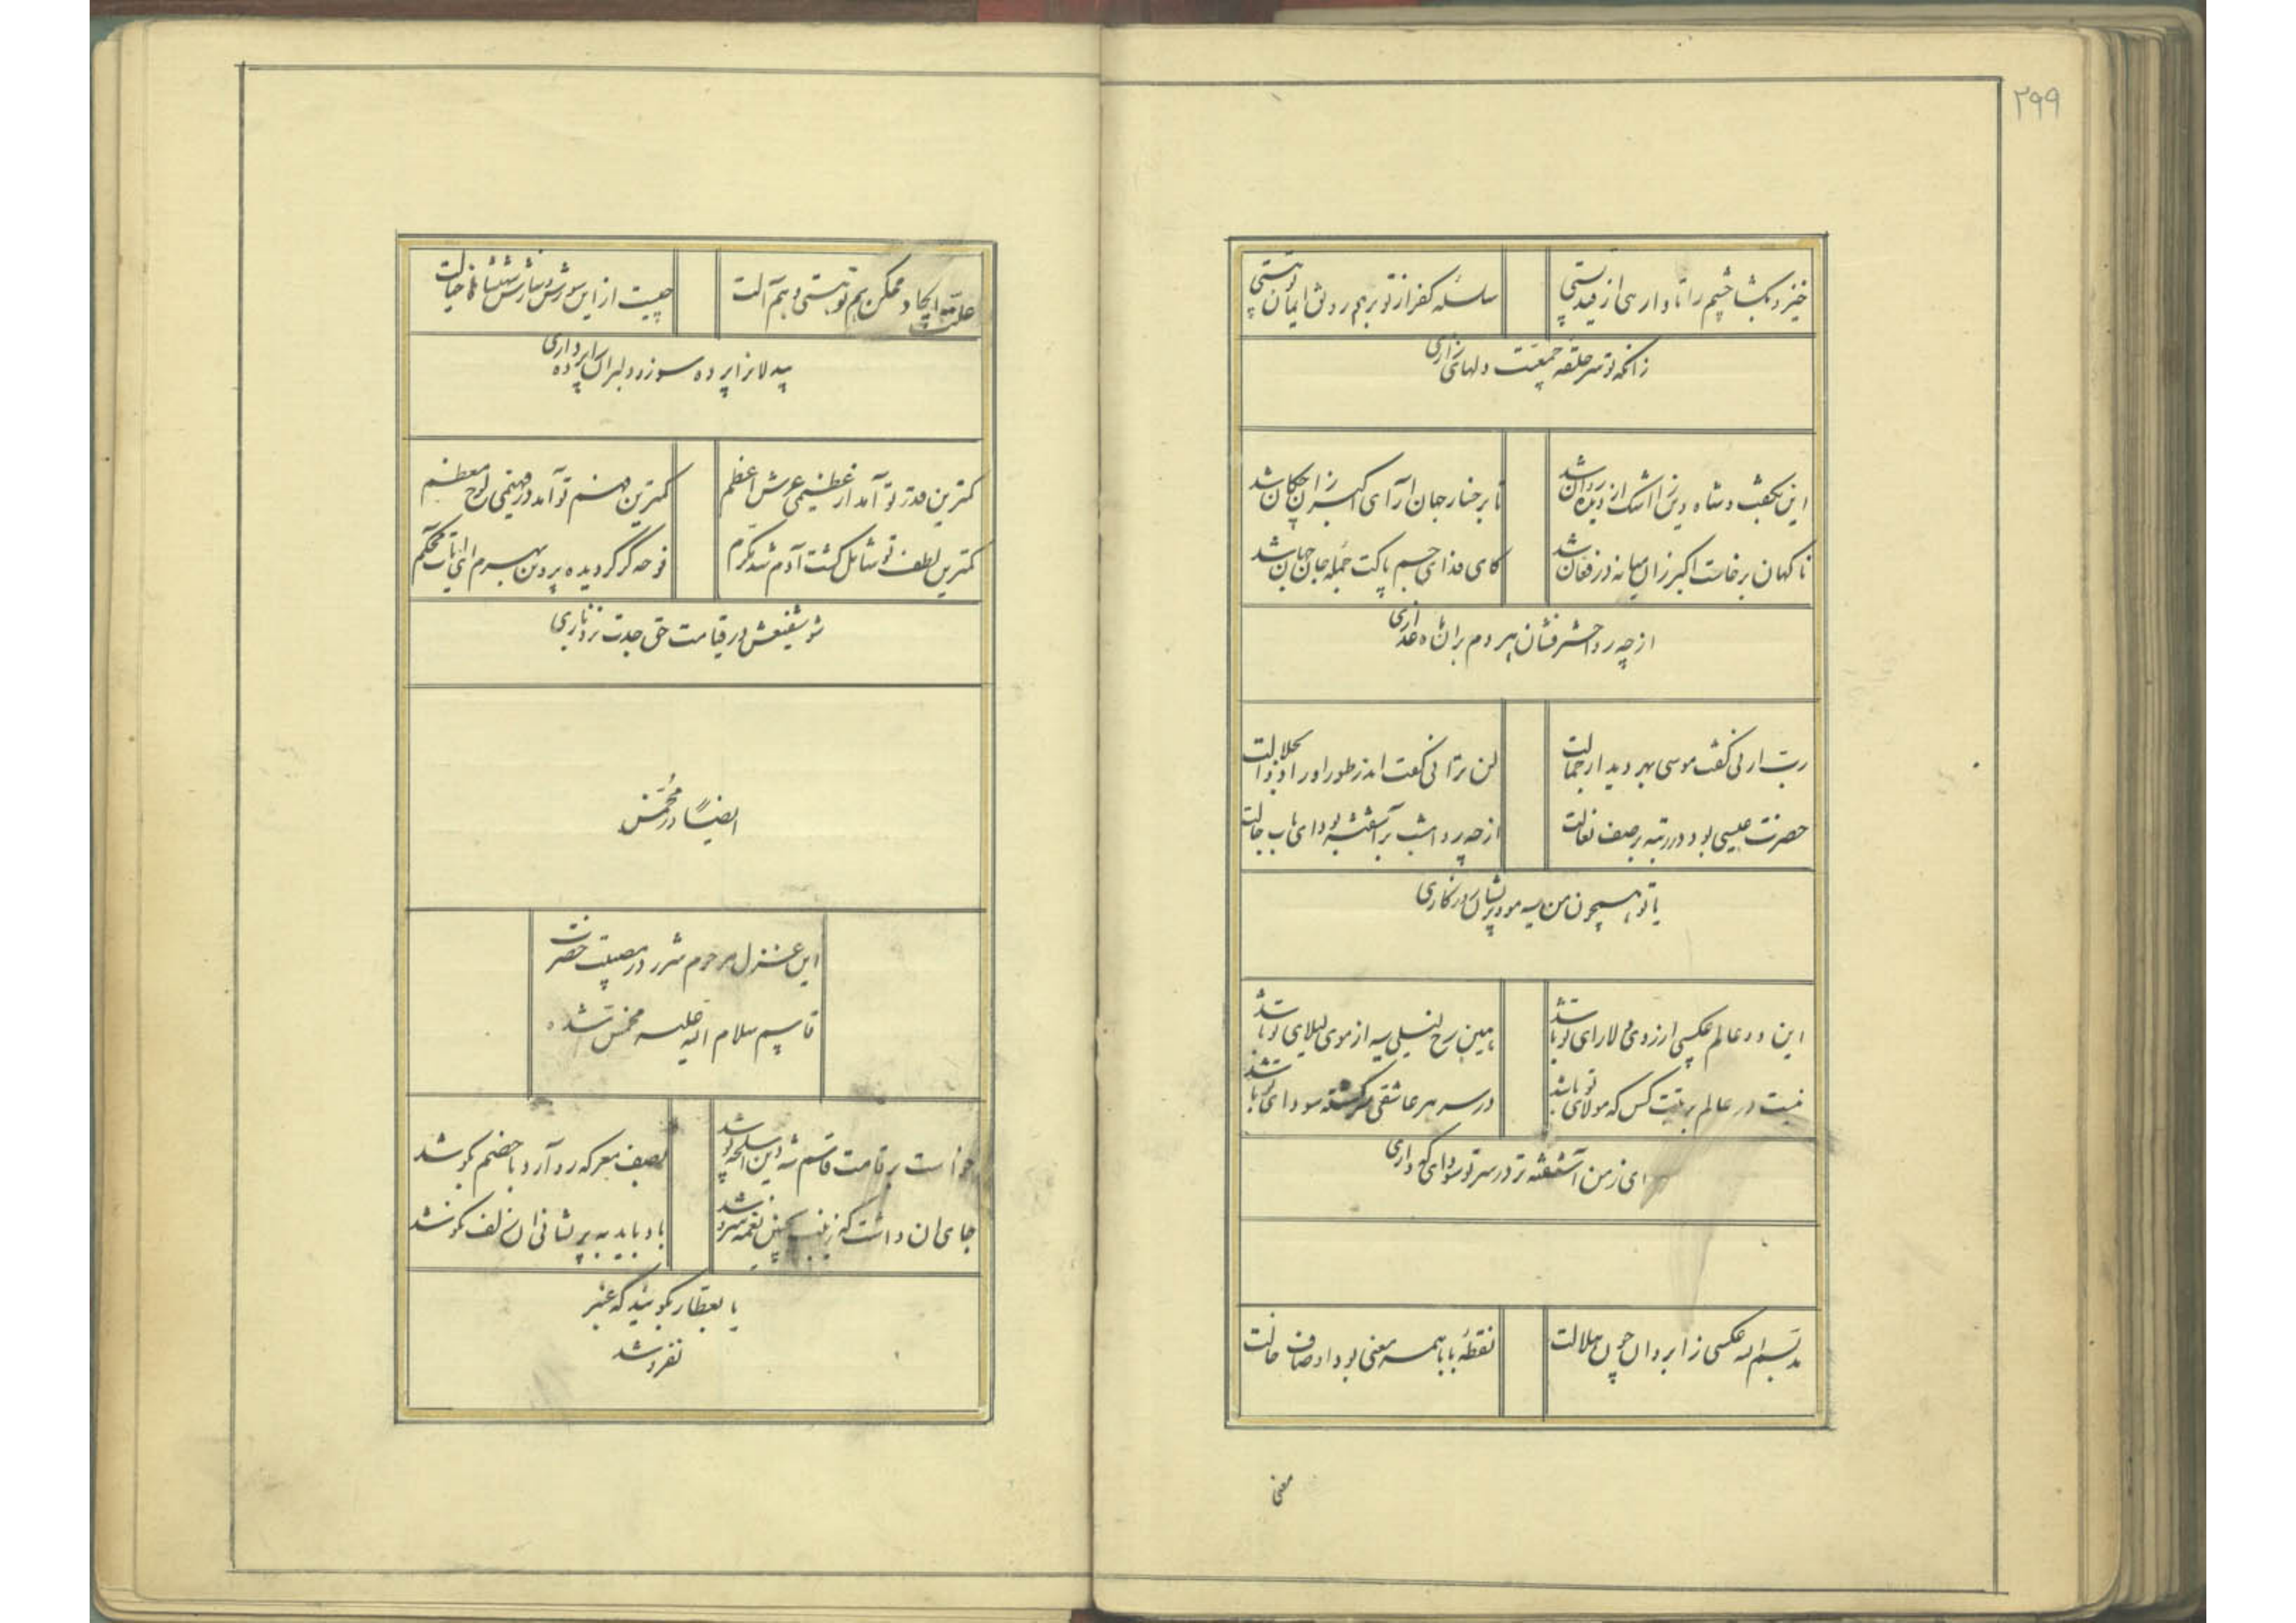 ۲۹۹
خیز و بگشا چشم را تا وارهی از قید پستی
سلسله کفر از تو برهم رونق ایمان توهستی
زانکه تو سر حلقه جمعیت دلهای زاری
این بگفت و شاه دین را اشک از دیده روان شد
تا برخسار جهان آرای اکبر زان چکان شد
ناگهان برخاست اکبر زان میانه در فغان شد
کای فدای جسم پاکت جمله جان جهان شد
از چه رو اختر فشان هر دم بران ماه عذاری
رب ارنی گفت موسی بهر دیدار جمالت
لن ترانی گفت اندر طور او را ذو الجلالت
حضرت عیسی بود در رتبه بر صف نعالت
از چه رو امشب برآشفته بود ای باب حالت
یا تو همچون من سیه مو و پریشان روزگاری
این دو عالم عکسی از روی دلارای تو باشد
بین رخ لیلی سیه از موی لیلای تو باشد
نیست در عالم بر نیت کس که مولای تو باشد
در سر هر عاشقی سرگشته سودای تو باشد
ای ز من آشفته تر در سر تو سودای که داری
مد بسم اله عکسی ز ابروان چون هلالت
نقطه با با همه معنی بود اوصاف خالت
معنی
علت ایجاد ممکن هم تو هستی و هم آلت
چیست از این سوزش و سازش
بیدلانرا پرده سوز و دلبران را پرده داری
کمترین قدر تو آمد از عظیمی عرش اعظم
کمترین فهم تو آمد در فهیمی لوح معظم
کمترین لطف تو شامل گشت آدم شد مکرم
نوحه گر گردیده پروین بهرم ای باب محکم
شو شفیعش در قیامت حق جدت نزد باری
ایضاً در مخمس
این غزل مرحوم شرر در مصیبت حضرت
قاسم سلام اله علیه مخمس شده
خواست بر قامت قاسم شه دین اسلحه پوشد
بصف معرکه رو آرد با خصم بکوشد
جای ان داشت که زینب چنین نغمه سروشد
باد باید به پریشانی ان زلف نکوشد
یا بعطار بگوئید که عنبر
نفروشد